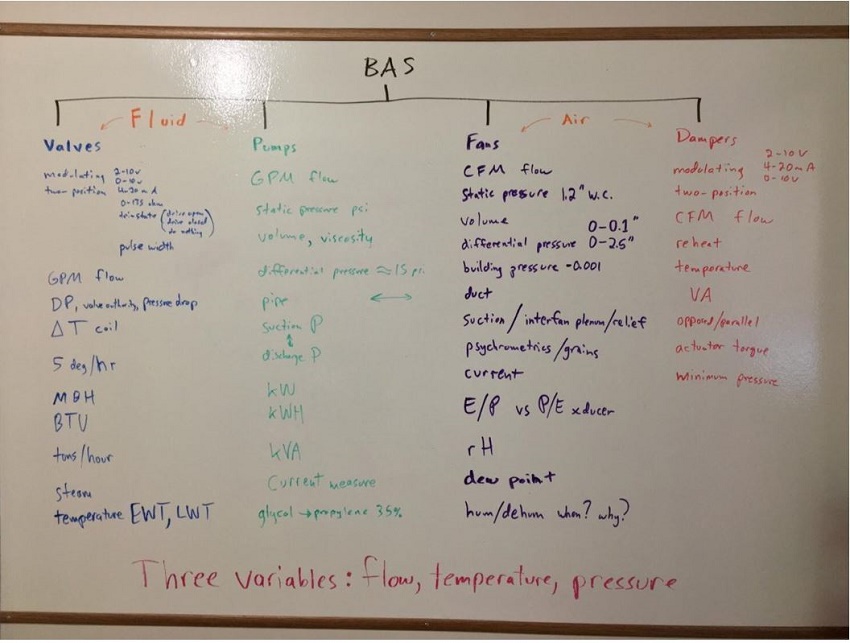 BAS
Fluid
Air
Valves
modulating 2-10v
0-10v
two-position 4-20mA
0-135 ohm
tri-state (drive open
drive closed
do nothing)
pulse width
GPM flow
DP, valve authority, pressure drop
ΔT coil
5 deg/hr
MBH
BTU
tons/hour
steam
temperature EWT, LWT
Pumps
GPM flow
static pressure psi
volume, viscosity
differential pressure ≈15 psi
pipe ↔
suction P
↕
discharge P
kW
kWH
kVA
Current measure
glycol → propylene 35%
Fans
CFM flow
Static pressure 1.2" w.c.
volume 0-0.1"
differential pressure 0-2.5"
building pressure -0.001
duct
Suction/interfan plenum/relief
psychrometrics/grains
current
E/P vs P/E xducer
rH
dew point
hum/dehum when? why?
Dampers
2-10v
modulating 4-20mA
0-10v
two-position
CFM flow
reheat
temperature
VA
opposed/parallel
actuator torque
minimum pressure
Three variables: flow, temperature, pressure